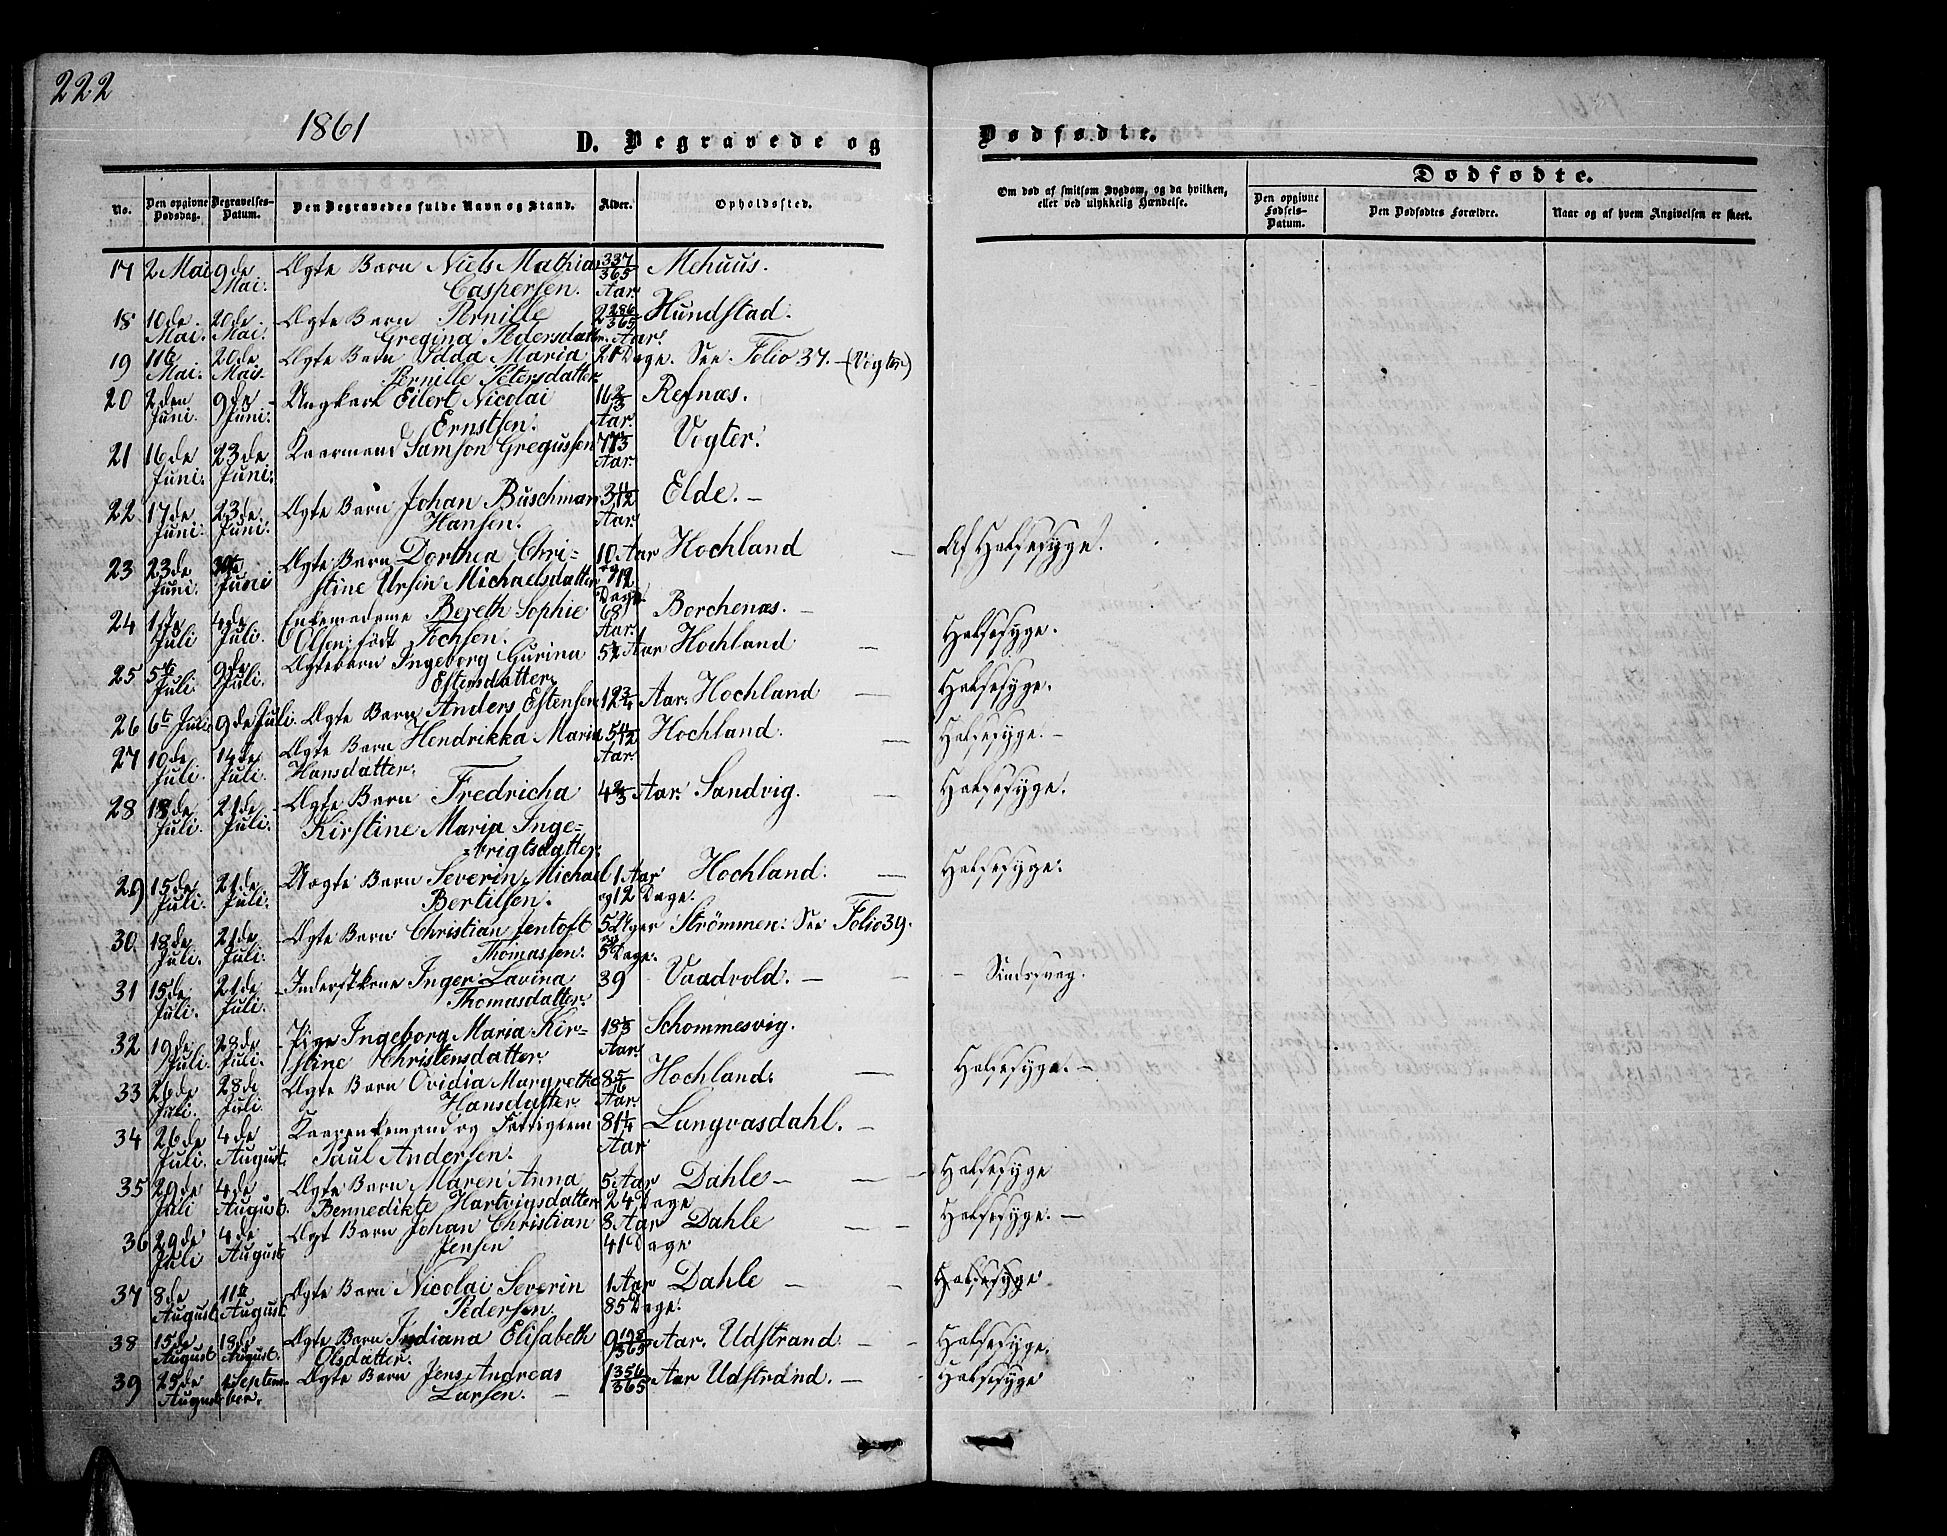 222
1861
D. Begravede og
Dødfødte.
No.
Den opgivne Dødsdag.
Begravelses-Datum.
Den Begravedes fulde Navn og Stand.
Alder.
Opholdssted.
Om død af smitsom Sygdom, og da hvilken,
eller ved ulykkelig Hændelse.
Dødfødte.
Den opgivne Fødsels-Datum.
Den Dødfødtes Forældre.
Naar og af hvem Angivelsen er skeet.
17 2 Mai 9de Mai. Ægte Barn Niels Mathias 337/365 Mehuus.
Caspersen. Aar.
18 10de Mai. 20de Mai. Ægte Barn Pernille 2 286/365 Hundstad.
Gregina Pedersdatter. Aar.
19 11te Mai. 20de Mai Ægte Barn Idda Maria 21 Dage. See Folio 37. (Vogter)
Pernille Petersdatter
20 2den Juni. 9de Juni. Ungkarl Eilert Nicolai 16 2/3 Refnæs.
Ernstsen. Aar.
21 16de Juni. 23de Juni. Kaarmand Samson Gregussen Vogter.
Aar.
22 17de Juni. 23de Juni. Ægte Barn Johan Buschman 3 11/12 Elde. –
Hansen. Aar.
23 23de Juni. 30te Juni Ægte Barn Dorthea Chri= 10 Aar Hochland – Af Halsesyge.
stine Ursin Michaelsdatter og 12 Dage.
24 1ste Juli 4de Juli. Enkemadame Bereth Sophie 68 Borchenæs. –
Olsen, født Fochsen. Aar. Halsesyge.
25 5te Juli. 9de Juli. Ægtebarn Ingeborg Gurina 5 1/2 Aar Hochland –
Estensdatter. Halsesyge.
26 6te Juli. 9de Juli. Ægte Barn Anders Estensen 12 3/4 Aar. Hochland – Halsesyge. –
27 10de Juli. 14de Juli. Ægte Barn Hendrikka Maria 5 11/12 Hochland. –
Hansdatter. Aar.
28 18de Juli. 21de Juli. Ægte Barn Fredricha 4 2/3 Aar. Sandvig. – Halsesyge.
Kirstine Maria Inge=
brigtsdatter.
29 15de Juli. 21de Juli. Uægte Barn Severin Michael 1 Aar Hochland. – Halsesyge.
Bertilsen. og 12 Dage.
30 18de Juli. 21de Juli. Ægte Barn Christian Jentoft 5 Uger Strømmen. See Folio 39.
Thomassen. 5 Dage.
31 15de Juli. 21de Juli. Inderstkone Inger Lavina 39 Vaadvold. – – Sindssvag.
Thomasdatter.
32 19de Juli. 28de Juli. Pige Ingeborg Maria Kir= 18 1/3 Schommesvig.
stine Christensdatter. Aar.
33 26de Juli. 28de Juli. Ægte Barn Ovidia Margrethe 8 5/6 Hochland. – Halsesyge. –
Hansdatter Aar
34 26de Juli. 4de August. Kaarenkemand og Fattiglem 81 1/4 Langvasdahl. –
Paul Andersen. Aar
35 29de Juli 4de August. Ægte Barn Maren Anna 5 Aar Dahle – – – Halsesyge
Bennedikte Hartvigsdatter 24 Dage
36 29de Juli 4de August Ægt Barn Johan Christian 8 Aar Dahle – – Halsesyge. –
Jensen 41 Dage
37 8de August 11te August Ægte Barn Nicolai Severin 1 Aar Dahle – – Halsesyge
Pedersen. 85 Dage.
38 15de August 18de August. Ægte Barn Indiana Elisabeth 9 198/365 Aar. Udstrand. – – Halsesyge.
Olsdatter.
39 25de August 1 September. – Ægte Barn Jens Andreas 1 356/365 Aar Udstrand. – – Halsesyge
Larsen. –